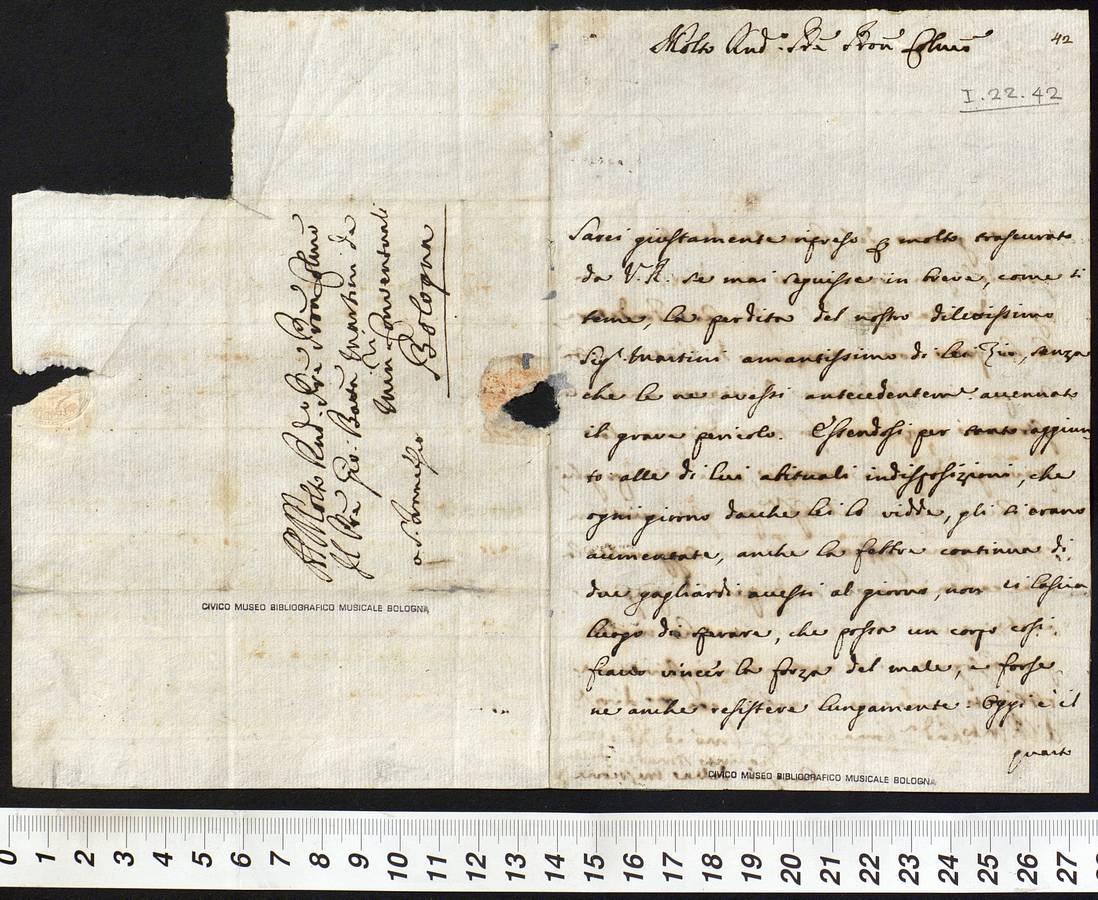 Al Molto Rnd: Pre Pron Colmo
Il Pre Gio: Batta Martini de
Min: Conventuali
Bologna
a S. Francesco
CIVICO MUSEO BIBLIOGRAFICO MUSICALE BOLOGNA
42
Molto Rndo: Pre Pron Colmo
I.22.42
Sarei giustamente ripreso p molto trascurato
da V.R. se mai seguisse in breve, come si
teme, la perdita del nostro dilettissimo
Sigr. Martini amantissimo di lei Zio, senza
che le ne avessi antecedentemte. accennato
il grave pericolo. Essendosi per tanto aggiun
to alle di lui abituali indisposizioni, che
ogni giorno dacche lei lo vidde, gli si erano
aumentate, anche la febbre continua di
due gagliardi accessi al giorno, non ci lascia
luogo di sperare, che possa un corpo così
fiacco vincer la forza del male, e forse
ne anche resistere lungamente. Oggi è il
quarto
CIVICO MUSEO BIBLIOGRAFICO MUSICALE BOLOGNA
0 1 2 3 4 5 6 7 8 9 10 11 12 13 14 15 16 17 18 19 20 21 22 23 24 25 26 27